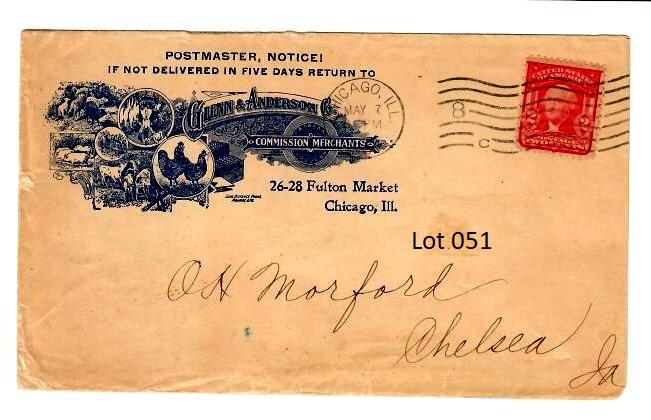 POSTMASTER, NOTICE!
IF NOT DELIVERED IN FIVE DAYS RETURN TO
GLENN & ANDERSON Co
COMMISSION MERCHANTS
26-28 Fulton Market
Chicago, Ill.
CHICAGO, ILL.
MAY 7
PM
8
C
UNITED STATES
OF AMERICA
2
2
Lot 051
OH Morford
Chelsea
Ia